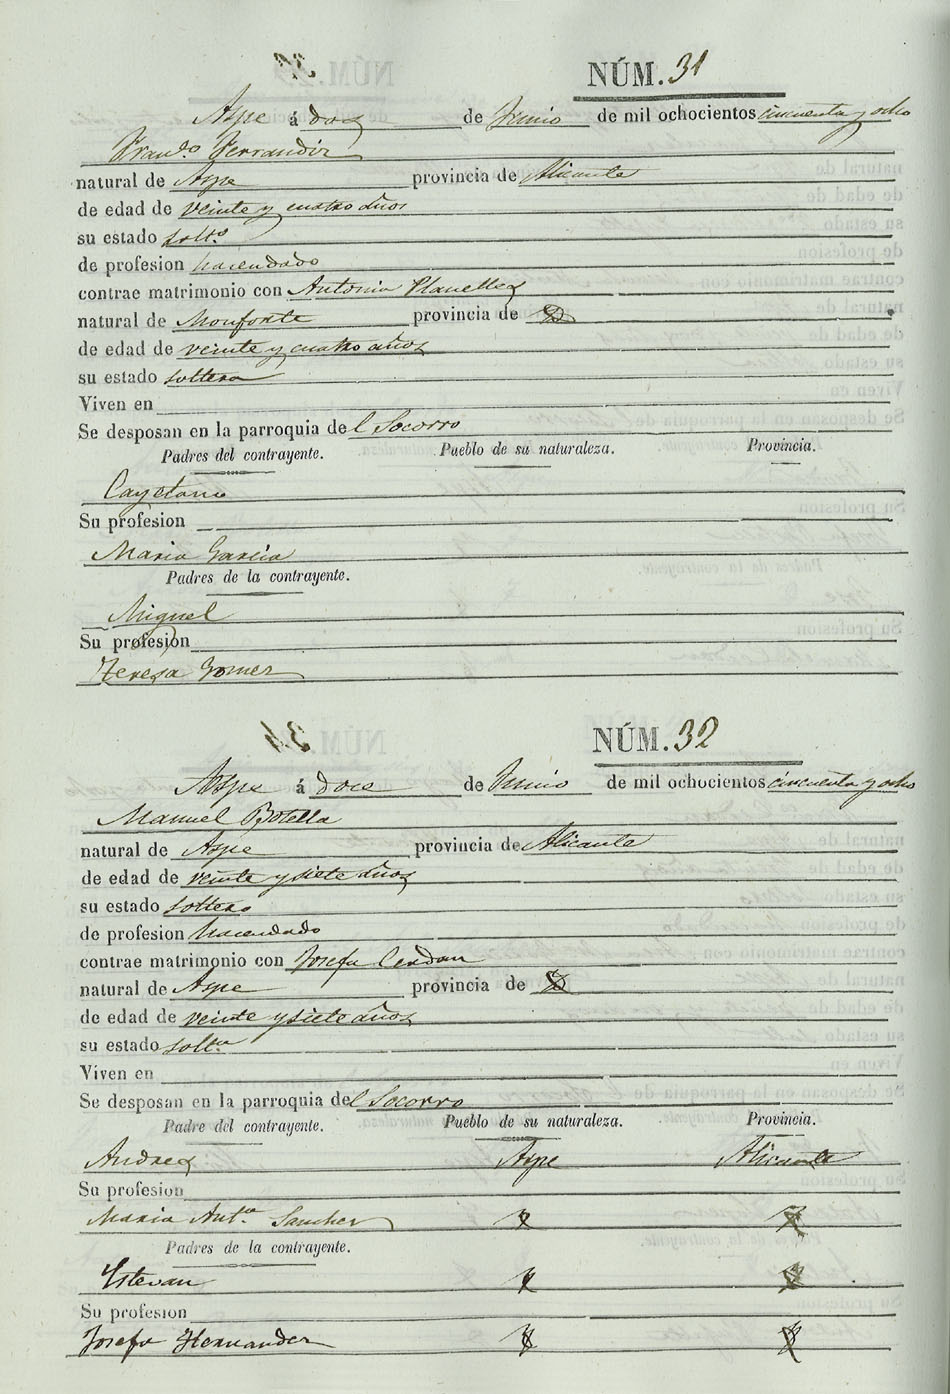 NÚM. 31
Aspe á dos de Junio de mil ochocientos cincuenta y ocho
Franco. Ferrandiz
natural de Aspe provincia de Alicante
de edad de veinte y cuatro años
su estado solto.
de profesion hacendado
contrae matrimonio con Antonia Planelles
natural de Monforte provincia de
de edad de veinte y cuatro años
su estado soltera
Viven en
Se desposan en la parroquia del Socorro
Padres del contrayente. Pueblo de su naturaleza. Provincia.
Cayetano
Su profesion
Maria Garcia
Padres de la contrayente.
Miguel
Su profesion
Teresa Gomez
NÚM. 32
Aspe á doce de Junio de mil ochocientos cincuenta y ocho
Manuel Botella
natural de Aspe provincia de Alicante
de edad de veinte y siete años
su estado soltero
de profesion hacendado
contrae matrimonio con Josefa Cerdan
natural de Aspe provincia de
de edad de veinte y siete años
su estado solta
Viven en
Se desposan en la parroquia del Socorro
Padre del contrayente. Pueblo de su naturaleza. Provincia.
Andres Aspe Alicante
Su profesion
Maria Anta. Sanchez
Padres de la contrayente.
Estevan
Su profesion
Josefa Hernandez